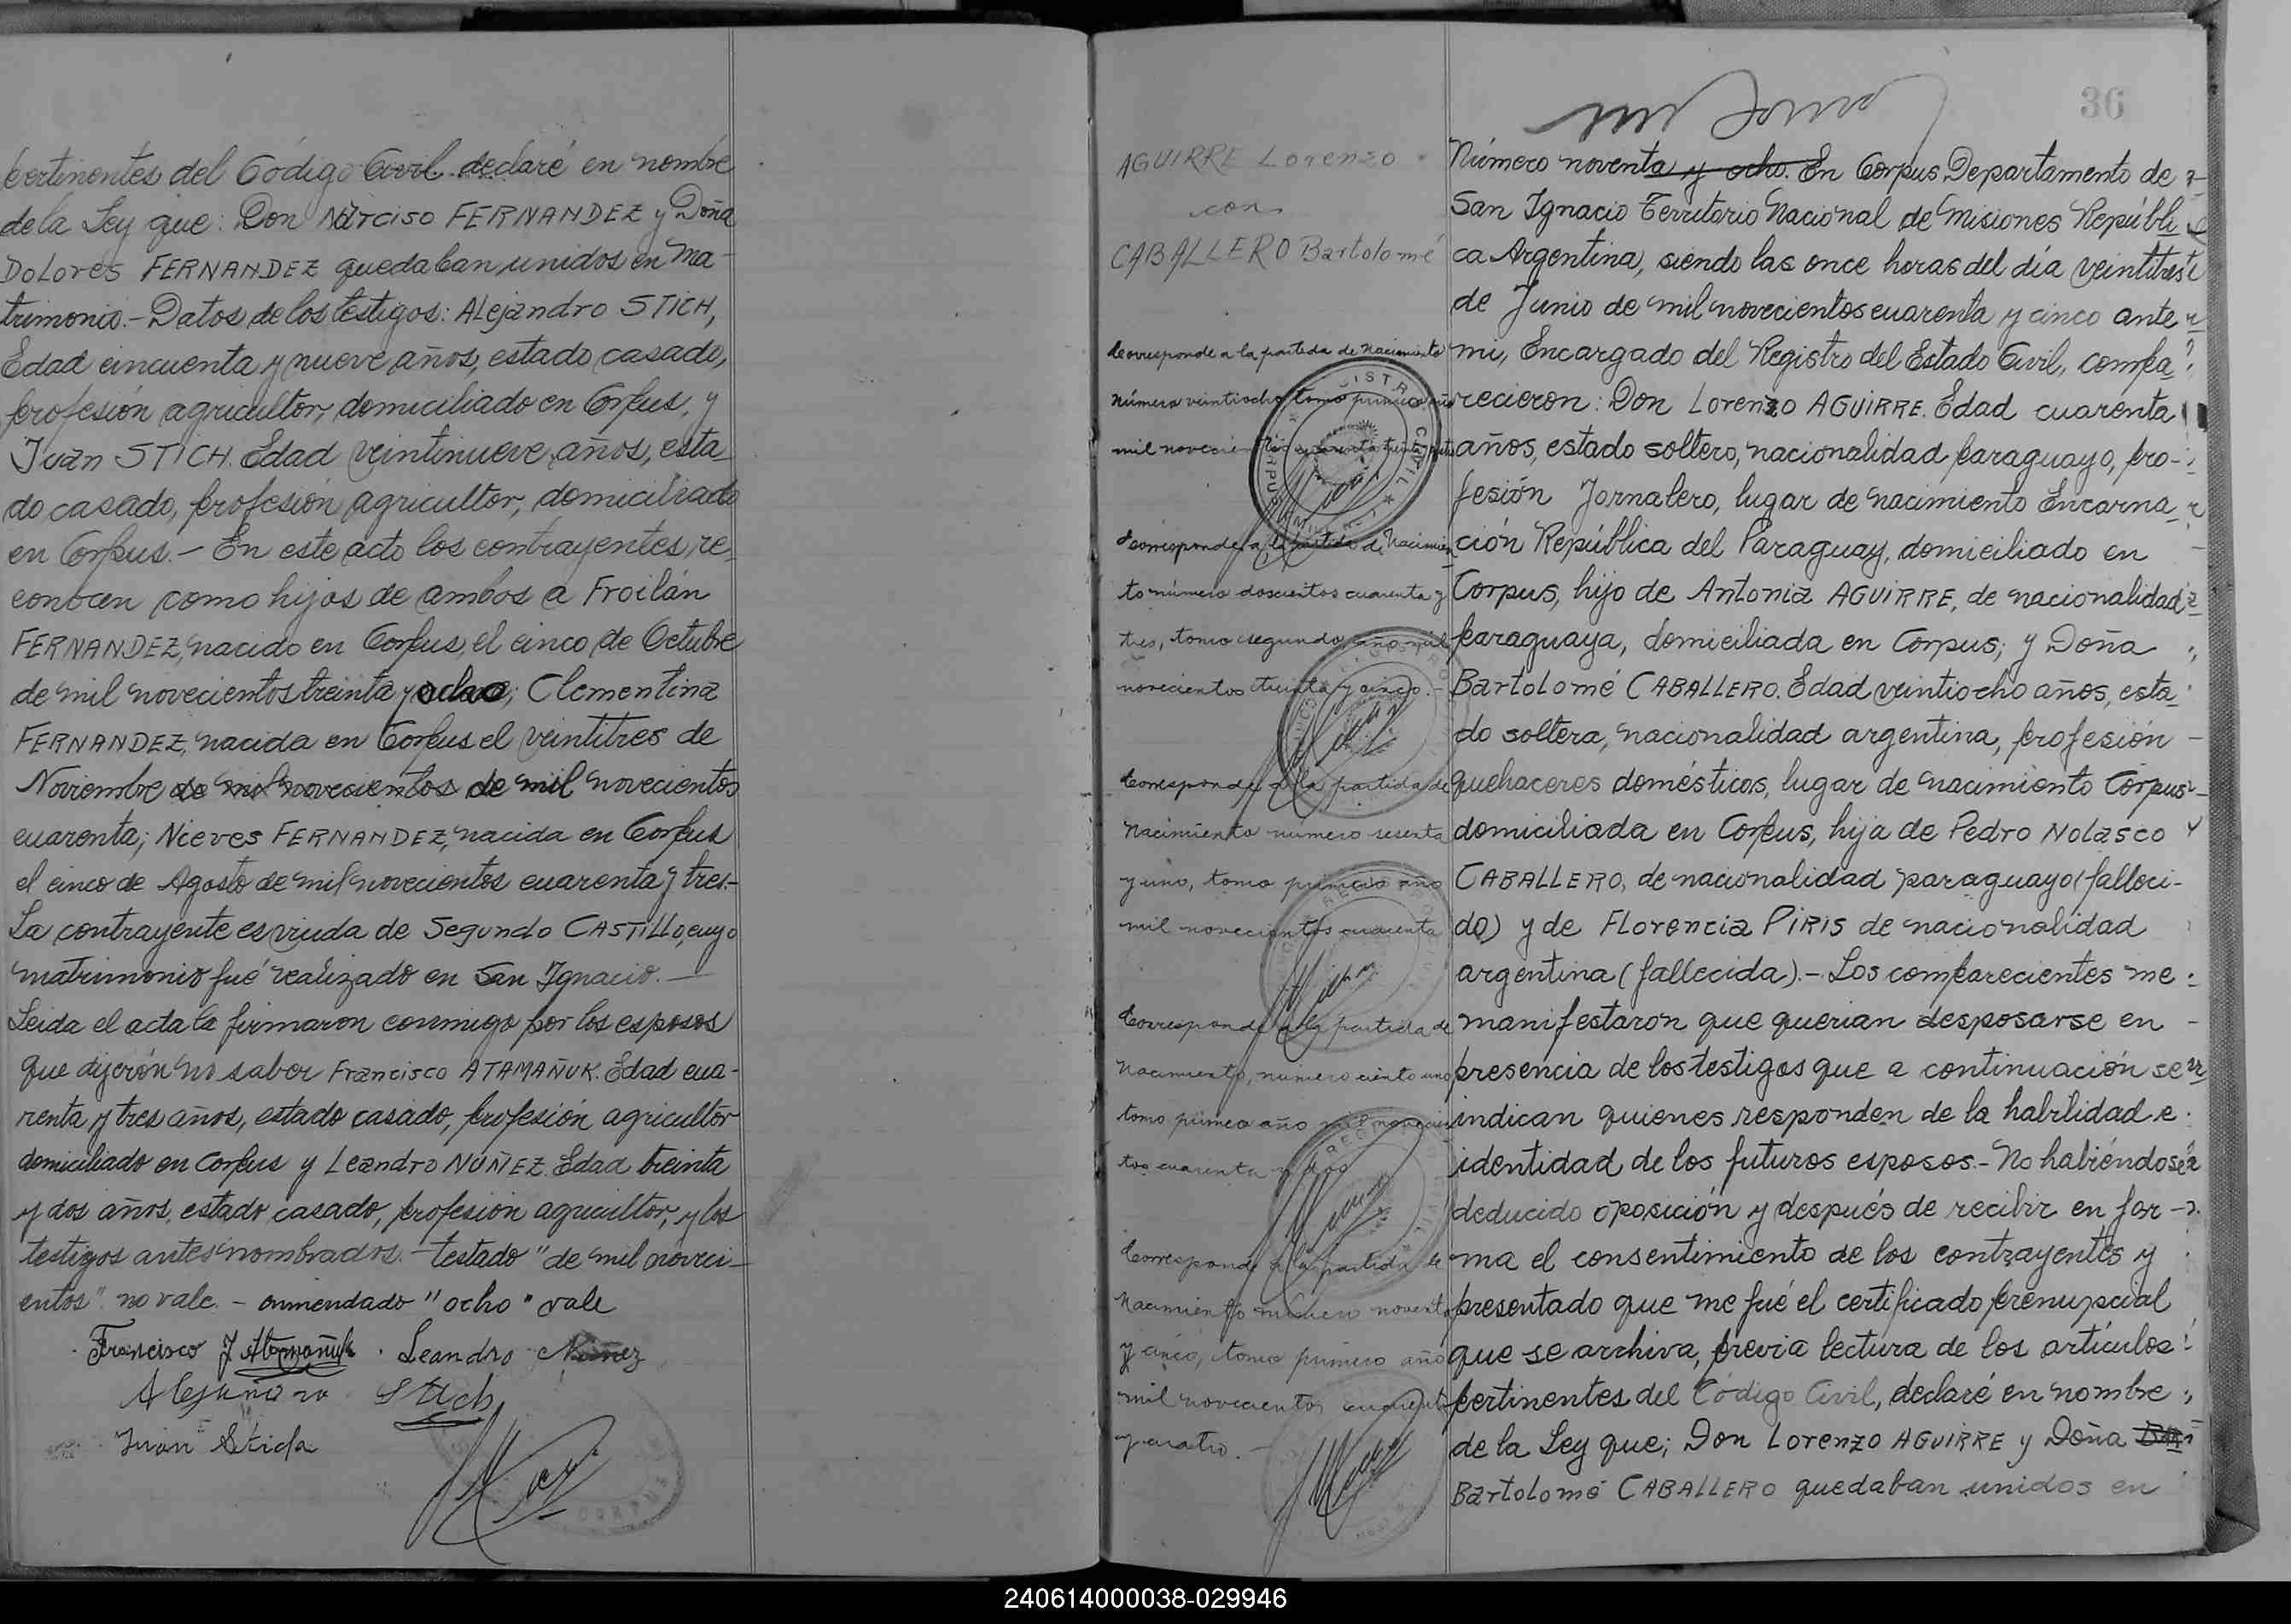 pertinentes del Código Civil declaré en nombre
de la Ley que: Don Narciso FERNANDEZ y Doña
Dolores FERNANDEZ quedaban unidos en ma-
trimonio.- Datos de los testigos: Alejandro STICH,
Edad cincuenta y nueve años, estado casado,
profesión agricultor, domiciliado en Corpus, y
Juan STICH. Edad veintinueve años, esta-
do casado, profesión agricultor, domiciliado
en Corpus.- En este acto los contrayentes re-
conocen como hijos de ambos a Froilán
FERNANDEZ, nacido en Corpus, el cinco de Octubre
de mil novecientos treinta y ocho; Clementina
FERNANDEZ, nacida en Corpus el veintitres de
Noviembre de mil novecientos de mil novecientos
cuarenta; Nieves FERNANDEZ, nacida en Corpus
el cinco de Agosto de mil novecientos cuarenta y tres.-
La contrayente es viuda de Segundo CASTILLO, cuyo
matrimonio fué realizado en San Ignacio.-
Leida el acta la firmaron conmigo por los esposos
que dijerón no saber Francisco ATAMAÑUK. Edad cua-
renta y tres años, estado casado, profesión agricultor
domiciliado en Corpus y Leandro NUÑEZ. Edad treinta
y dos años, estado casado, profesión agricultor, y los
testigos antes nombrados.- testado "de mil noveci-
entos" no vale.- enmendado "ocho" vale
Francisco J Atamañuk . Leandro Nuñez
Alejandro Stich
Juan
36
AGUIRRE Lorenzo
con
CABALLERO Bartolomé
Corresponde a la partida de Nacimiento
número veintiocho, tomo primero año
mil novecientos
Corresponde a la partida de Nacimien-
to número doscientos cuarenta y
tres, tomo segundo, año mil
novecientos treinta y cinco.-
Corresponde a la partida de
Nacimiento número sesenta
y uno, tomo primero año
mil novecientos cuarenta
Corresponde a la partida de
Nacimiento, número ciento uno
tomo primero año mil novecien-
tos cuarenta y dos
Corresponde a la partida de
Nacimiento número noventa
y cinco, tomo primero año
mil novecientos cuarenta
y cuatro.-
Número noventa y ocho. En Corpus Departamento de
San Ignacio Territorio Nacional de Misiones Repúbli-
ca Argentina, siendo las once horas del día veintitres
de Junio de mil novecientos cuarenta y cinco ante
mi, Encargado del Registro del Estado Civil, compa-
recieron: Don Lorenzo AGUIRRE. Edad cuarenta
años, estado soltero, nacionalidad paraguayo, pro-
fesión Jornalero, lugar de nacimiento Encarna-
ción República del Paraguay, domiciliado en
Corpus, hijo de Antonia AGUIRRE, de nacionalidad
paraguaya, domiciliada en Corpus; y Doña
Bartolomé CABALLERO. Edad veintiocho años, esta-
do soltera, nacionalidad argentina, profesión
quehaceres domésticos, lugar de nacimiento Corpus
domiciliada en Corpus, hija de Pedro Nolasco
CABALLERO, de nacionalidad paraguayo (falleci-
do) y de Florencia PIRIS de nacionalidad
argentina (fallecida).- Los comparecientes me
manifestaron que querian desposarse en
presencia de los testigos que a continuación se
indican quienes responden de la habilidad e
identidad de los futuros esposos.- No habiéndose
deducido oposición y después de recibir en for-
ma el consentimiento de los contrayentes y
presentado que me fué el certificado prenupcial
que se archiva, previa lectura de los artículos
pertinentes del Código Civil, declaré en nombre
de la Ley que; Don Lorenzo AGUIRRE y Doña Bar
Bartolomé CABALLERO quedaban unidos en
240614000038-029946